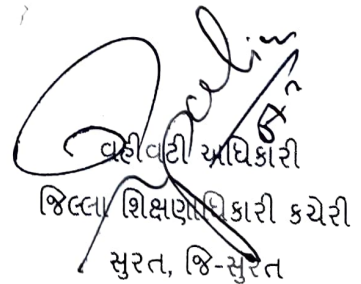 વહીવટી અધિકારી
જિલ્લા શિક્ષણાધિકારી કચેરી
સુરત, જિ-સુરત